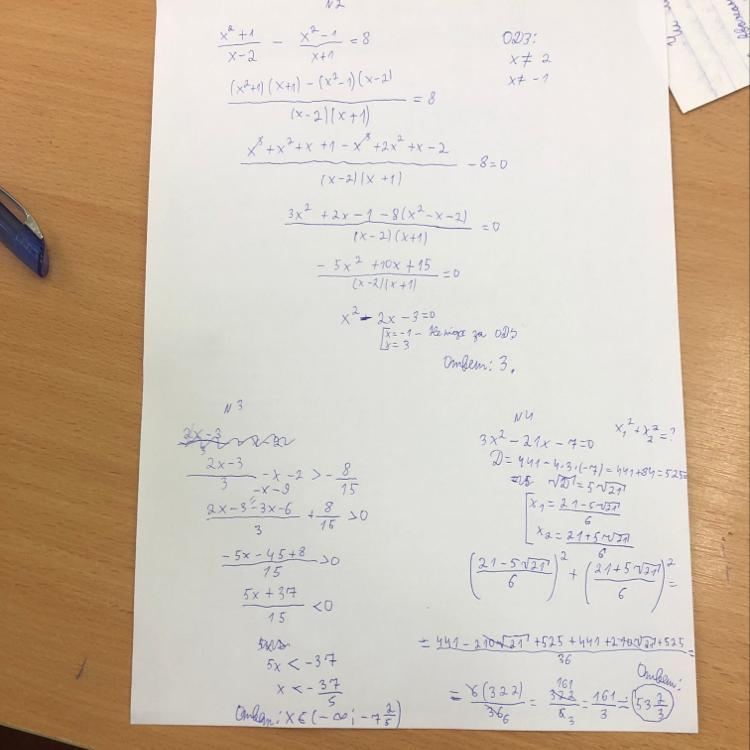 N2
(x²+1)/(x-2) - (x²-1)/(x+1) = 8
ОДЗ:
x ≠ 2
x ≠ -1
((x²+1)(x+1) - (x²-1)(x-2))/((x-2)(x+1)) = 8
(x³+x²+x+1-x³+2x²+x-2)/((x-2)(x+1)) - 8=0
(3x²+2x-1-8(x²-x-2))/((x-2)(x+1)) = 0
(-5x²+10x+15)/((x-2)(x+1)) = 0
x² - 2x - 3 = 0
[x = -1 - за ОДЗ
x = 3
Ответ: 3.
N3
2x-3
3
(2x-3)/3 - x - 2 > - 8/15
-x-9
(2x-3-3x-6)/3 + 8/15 > 0
(-5x-45+8)/15 > 0
(5x+37)/15 < 0
5x < -37
x < -37/5
Ответ: x ∈ (-∞; -7 2/5)
N4
x₁²+x₂²=?
3x²-21x-7=0
D=441-4·3·(-7)=441+84=525
√D=5√21
[x₁ = (21-5√21)/6
x₂ = (21+5√21)/6
((21-5√21)/6)² + ((21+5√21)/6)² =
= (441-210√21+525+441+210√21+525)/36 =
= 6(322)/36 6 = 161 322/6 3 = 161/3 =
Ответ:
53 2/3